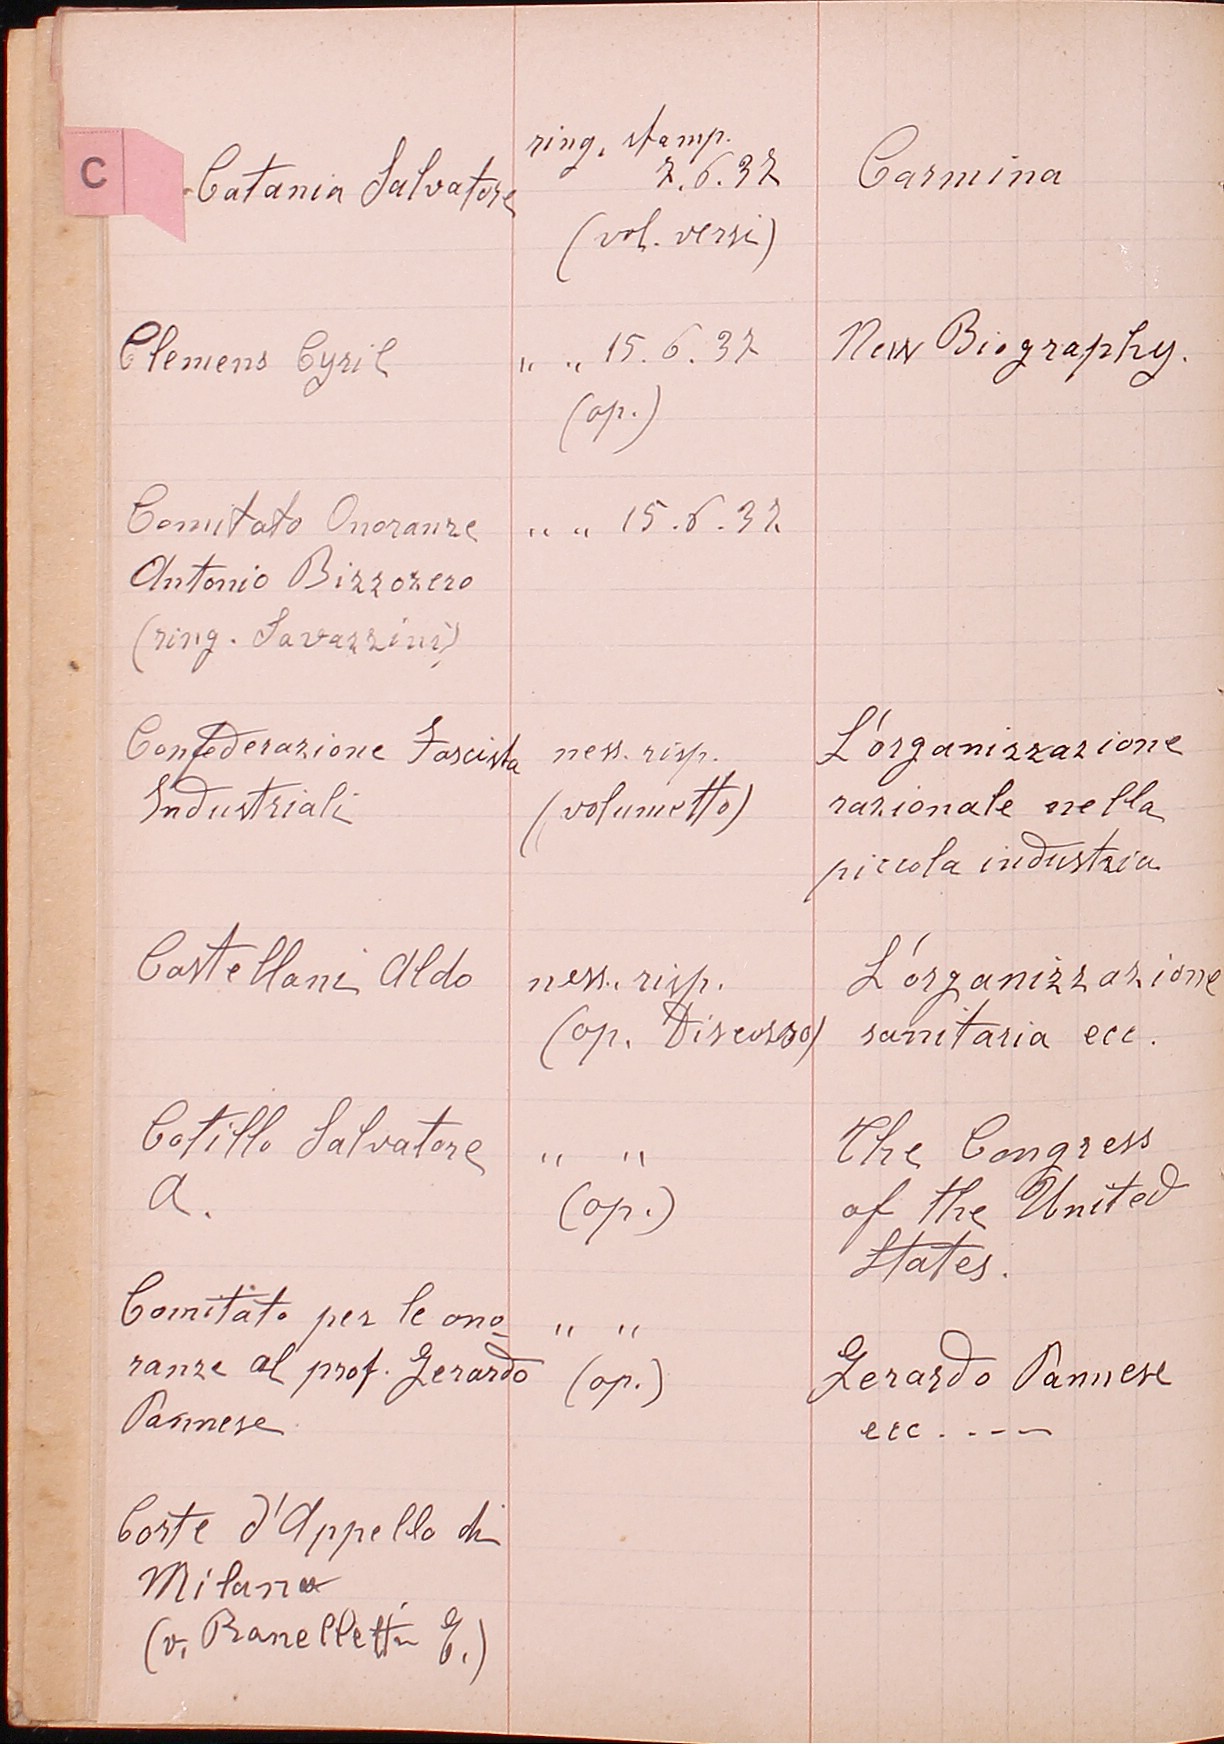 C
Catania Salvatore
ring. stamp.
2.6.32
(vol. versi)
Carmina
Clemens Cyril
" " 15.6.32
(op.)
New Biography.
Comitato Onoranze
Antonio Bizzozero
(ring. Savazzini)
" " 15.6.32
Confederazione Fascista
Industriali
ness. risp.
(volumetto)
L'organizzazione
razionale nella
piccola industria
Castellani Aldo
ness. risp.
(op. Discorso)
L'organizzazione
sanitaria ecc.
Cotillo Salvatore
A.
" "
(op.)
The Congress
of the United
States.
Comitato per le ono-
ranze al prof. Gerardo
Pannese
" "
(op.)
Gerardo Pannese
ecc. ---
Corte d'Appello di
Milano
(v. Ranelletti E.)